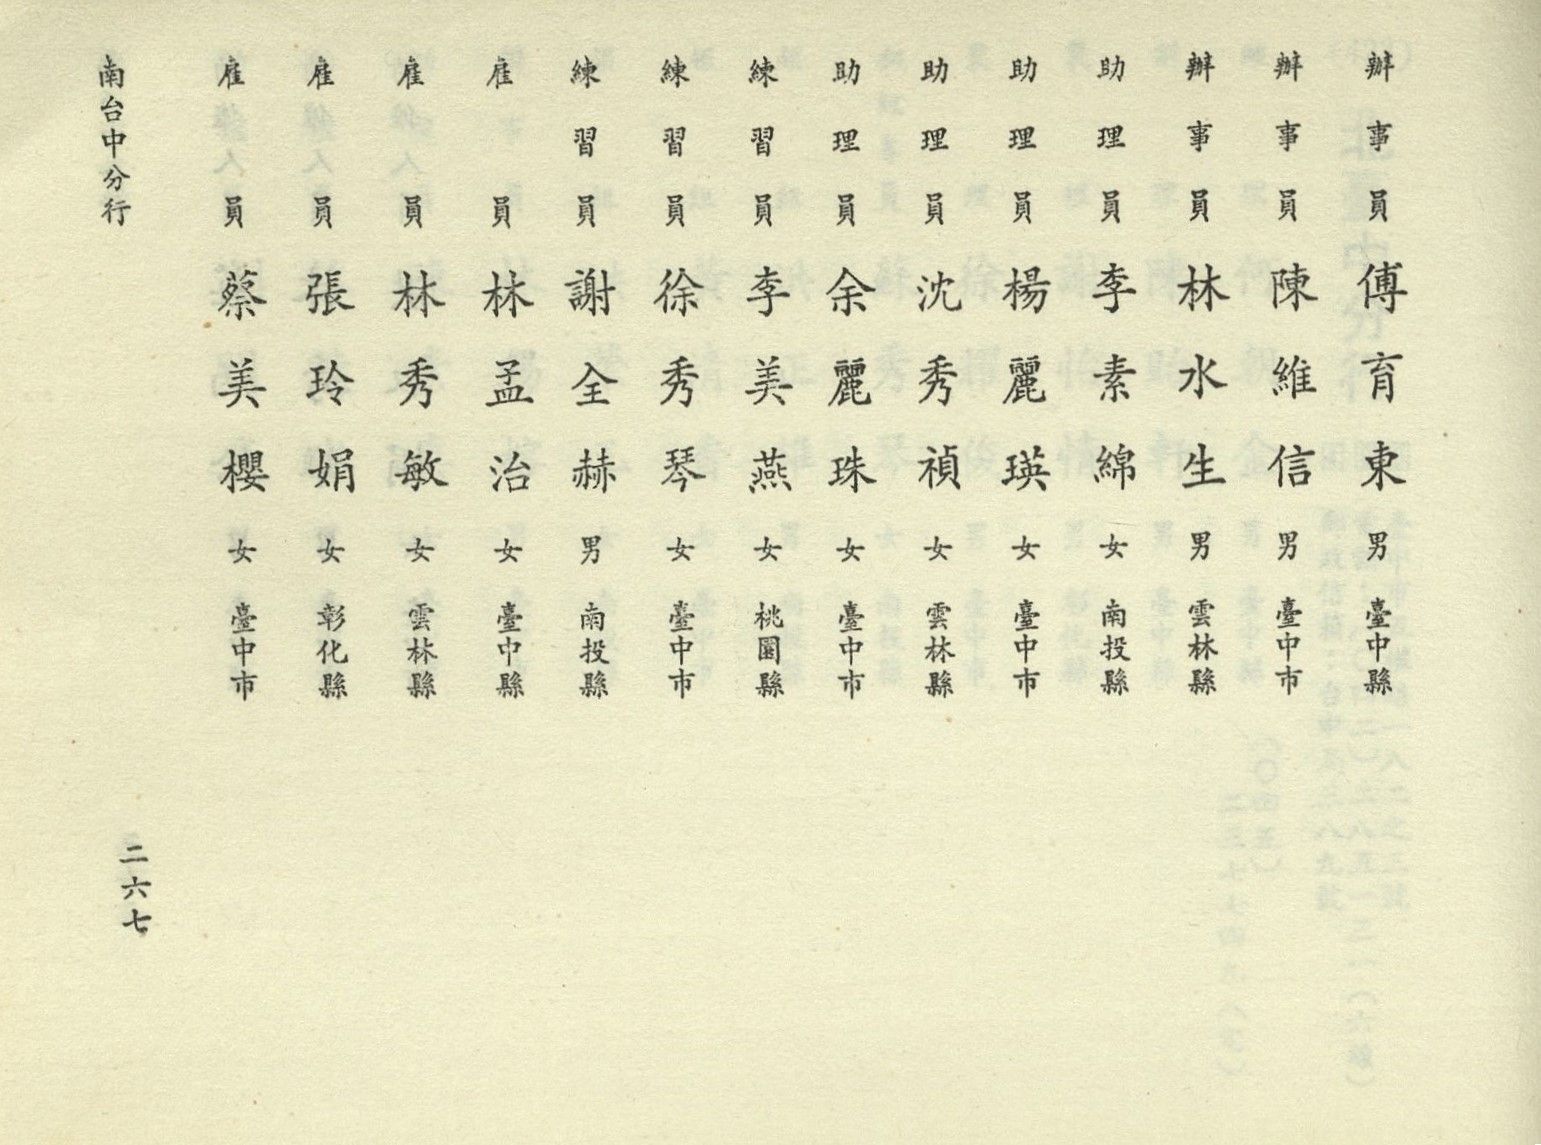 辦事員傅育東男臺中縣
辦事員陳維信男臺中市
辦事員林水生男雲林縣
助理員李素綿女南投縣
助理員楊麗瑛女臺中市
助理員沈秀禎女雲林縣
助理員余麗珠女臺中市
練習員李美燕女桃園縣
練習員徐秀琴女臺中市
練習員謝全赫男南投縣
雇員林孟治女臺中縣
雇員林秀敏女雲林縣
雇員張玲娟女彰化縣
雇員蔡美櫻女臺中市
南台中分行
二六七